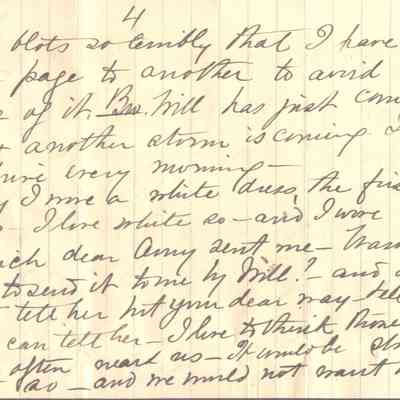 4
blots so terribly that I have
page to another to avoid
of it. Bro. Will has just com
another storm is coming I
every morning—
I wore a white dress, the fir
I love white so— and I wore
ich dear Amy sent me—
to send it to me by Will?— and
tell her but you dear may tell
can tell her— I love to think
often near us— It would be
so— and we would not want